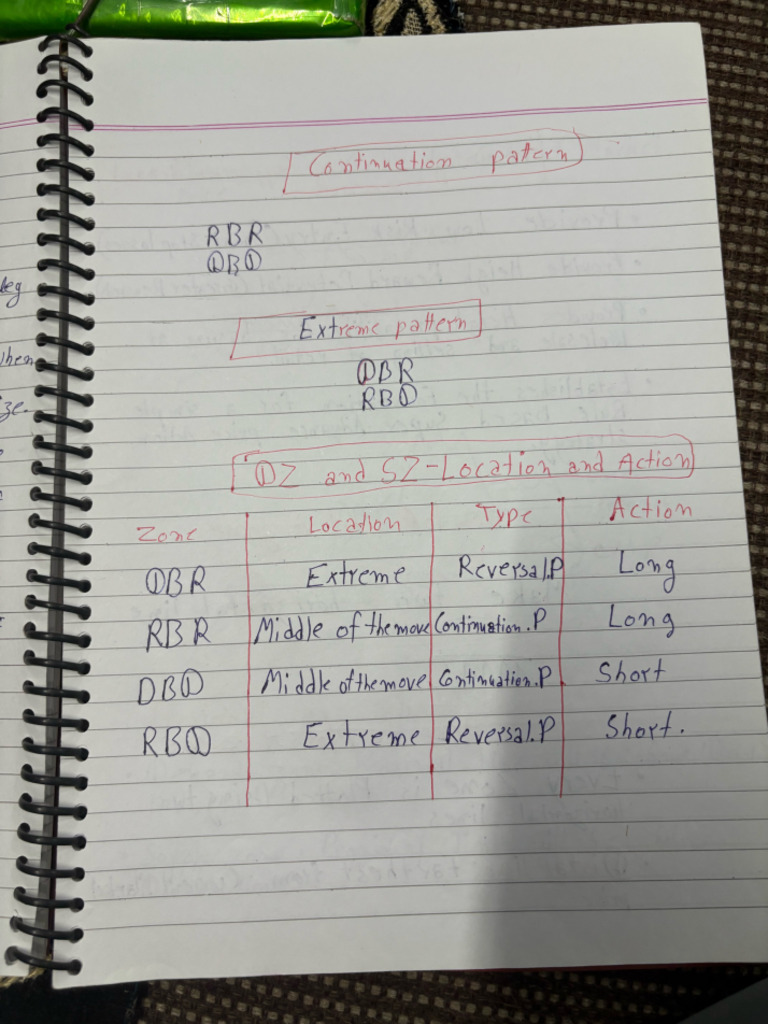 Continuation pattern
RBR
DBD
Extreme pattern
DBR
RBD
DZ and SZ-Location and Action
Zone Location Type Action
DBR Extreme Reversal.P Long
RBR Middle of the move Continuation.P Long
DBD Middle of the move Continuation.P Short
RBD Extreme Reversal.P Short.
leg
ze.